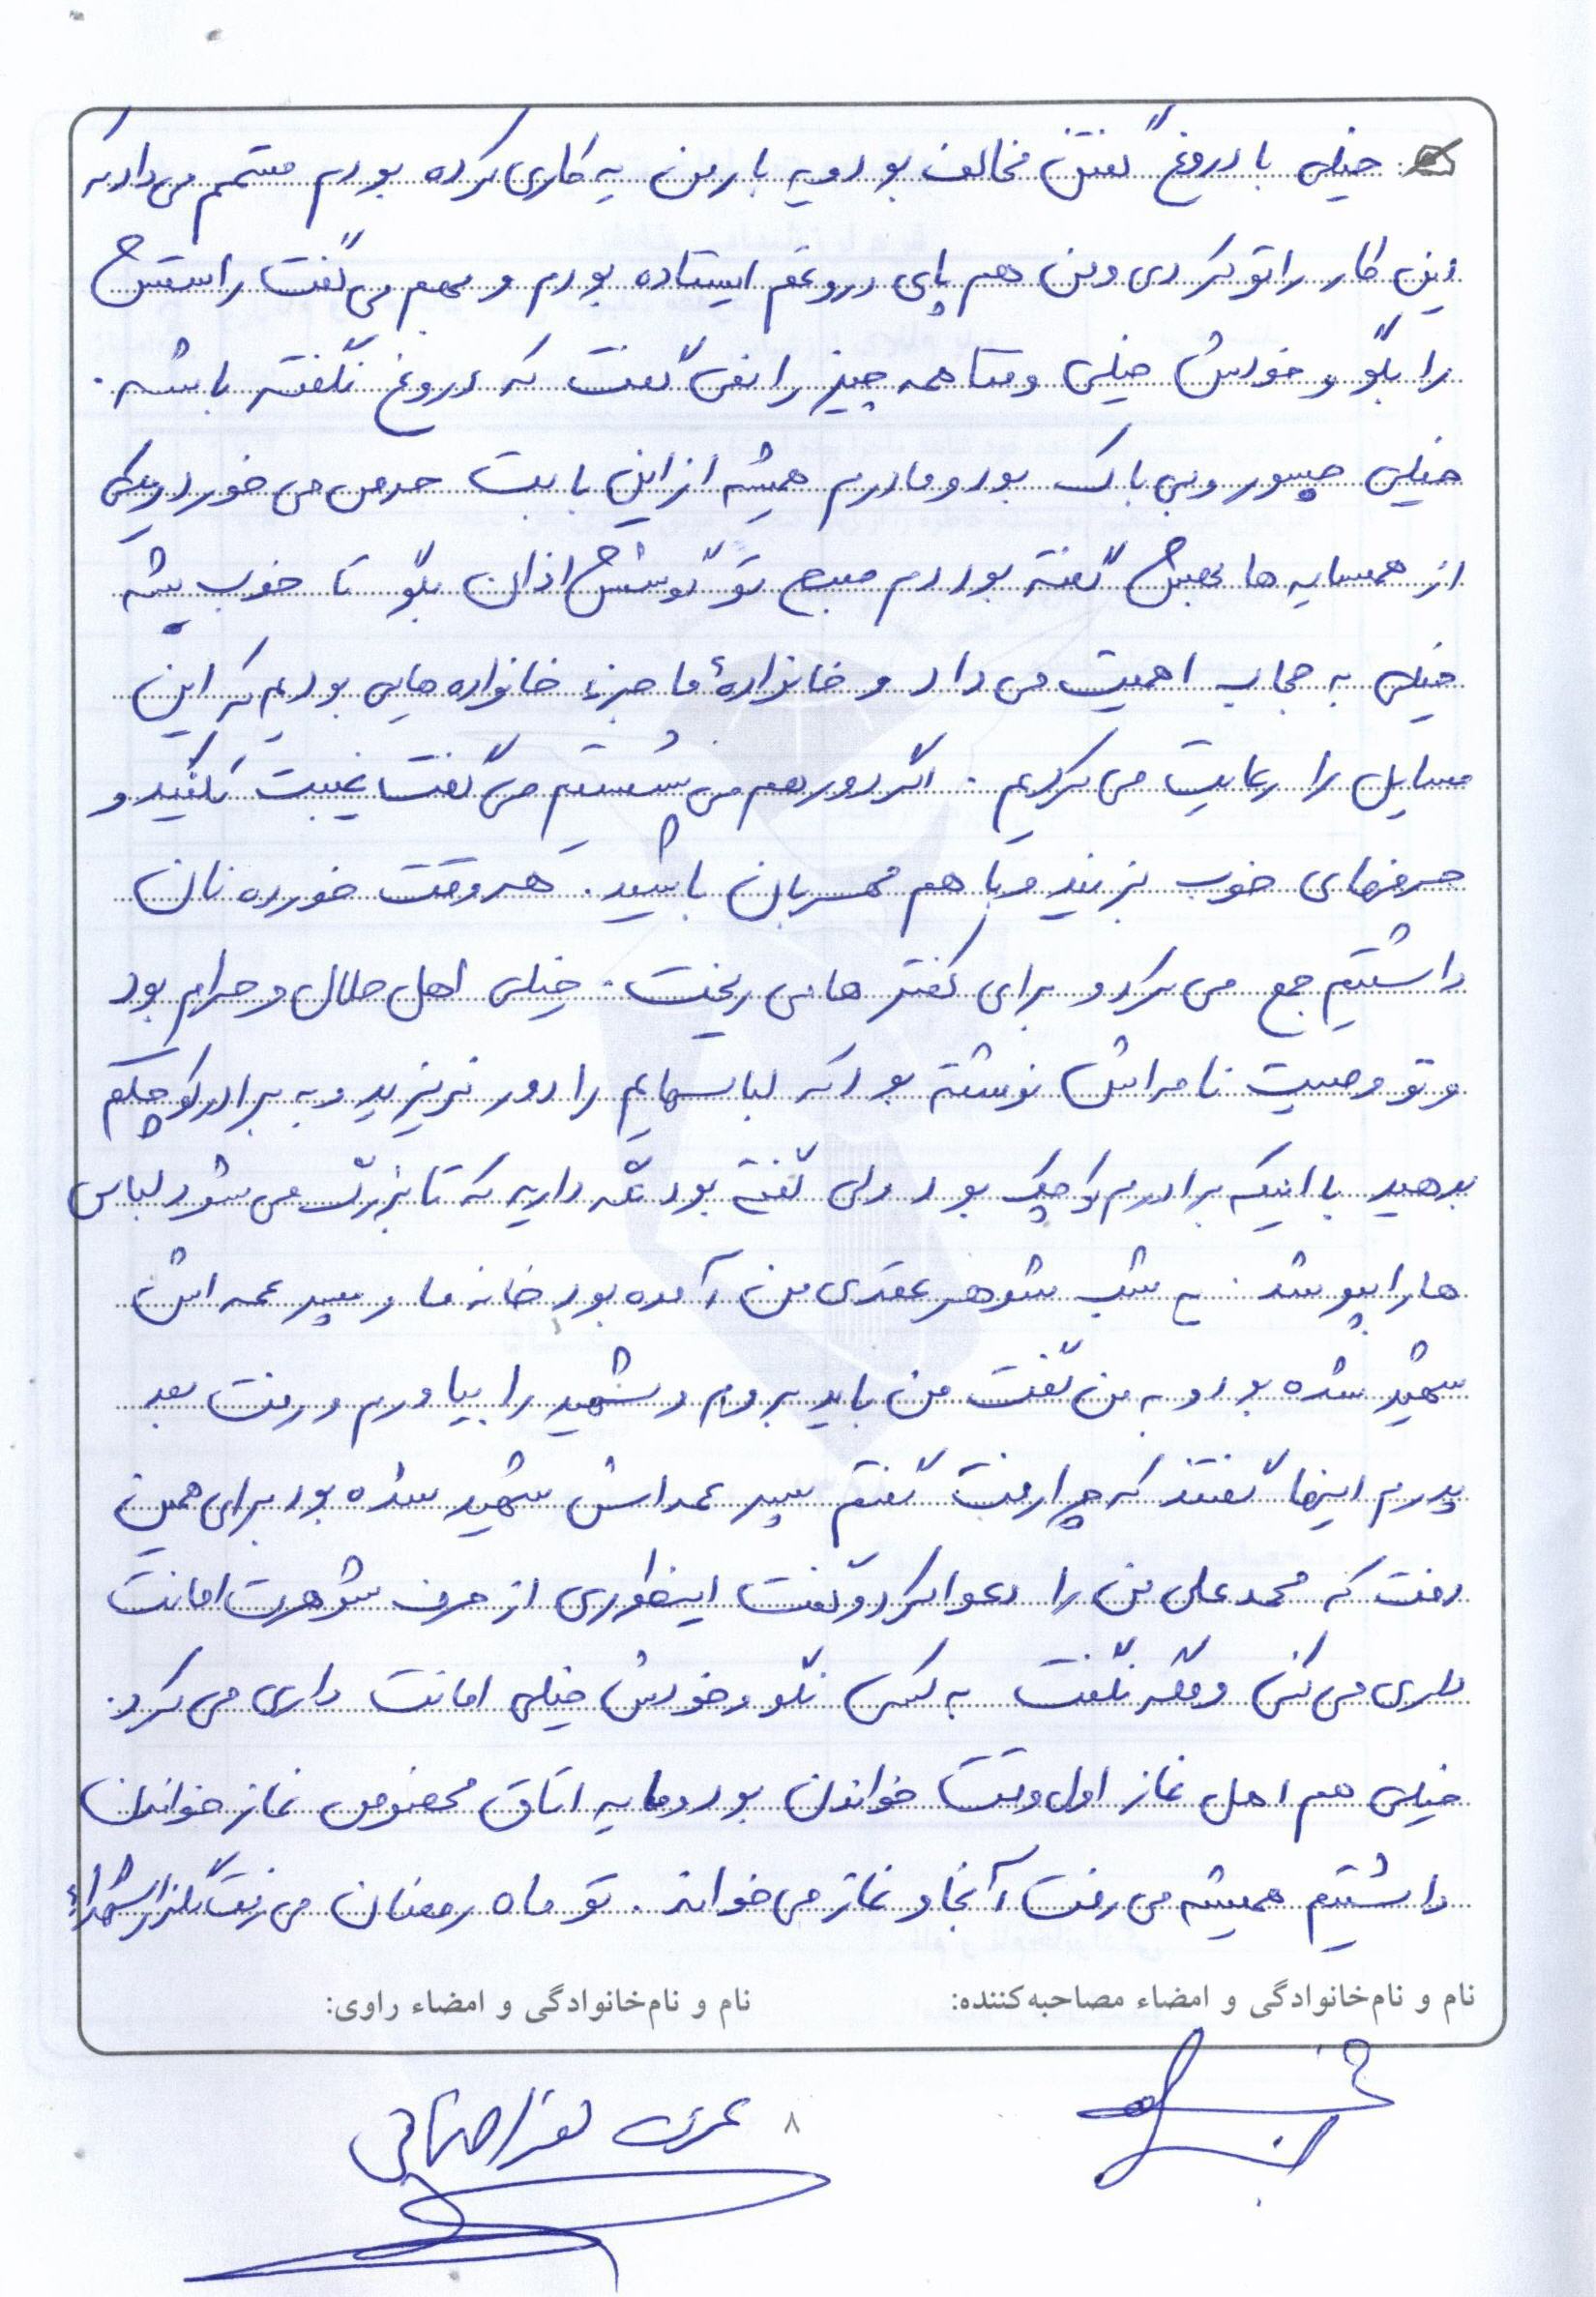 خیلی با دروغ گفتن مخالف بود و یه بار من یه کاری کرده بودم قسمم می داد که
این کار را تو کردی و من هم پای دروغم ایستاده بودم و بهم می گفت راستش
را بگو و خودش خیلی وقتا همه چیز را نمی گفت که دروغ نگفته باشه.
خیلی جسور و بی باک بود و مادرم همیشه از این بابت حرص می خورد و یکی
از همسایه ها بهش گفته بود دم صبح تو گوشش اذان بگو تا خوب بشه
خیلی به حجاب اهمیت می داد و خانوادهٔ ما جزء خانواده هایی بودیم که این
مسایل را رعایت می کردیم. اگر دور هم می نشستیم می گفت غیبت نکنید و
حرفهای خوب بزنید و با هم مهربان باشید. هر وقت خورده نان
داشتیم جمع می کرد و برای کفتر ها می ریخت. خیلی اهل حلال و حرام بود
و تو وصیت نامه اش نوشته بود که لباسهایم را دور نریزید و به برادر کوچکم
بدهید با اینکه برادرم کوچک بود ولی گفته بود نگه دارید که تا بزرگ می شود لباس
ها را بپوشد. ی شب شوهر عقدی من آمده بود خانه ما و پسر عمه اش
شهید شده بود و به من گفت من باید بروم و شهید را بیاورم و رفت بعد
پدرم اینها گفتند که چرا رفت گفتم پسر عمه اش شهید شده بود برای همین
رفت که محمد علی من را دعوا کرد و گفت اینطوری از حرف شوهرت امانت
داری می کنی و مگه نگفت به کسی نگو و خودش خیلی امانت داری می کرد.
خیلی هم اهل نماز اول وقت خواندن بود و ما یه اتاق مخصوص نماز خواندن
داشتیم همیشه می رفت آنجا و نماز می خواند. تو ماه رمضان می رفت گلزار شهداء
نام و نام‌خانوادگی و امضاء مصاحبه‌کننده: نام و نام‌خانوادگی و امضاء راوی:
۸